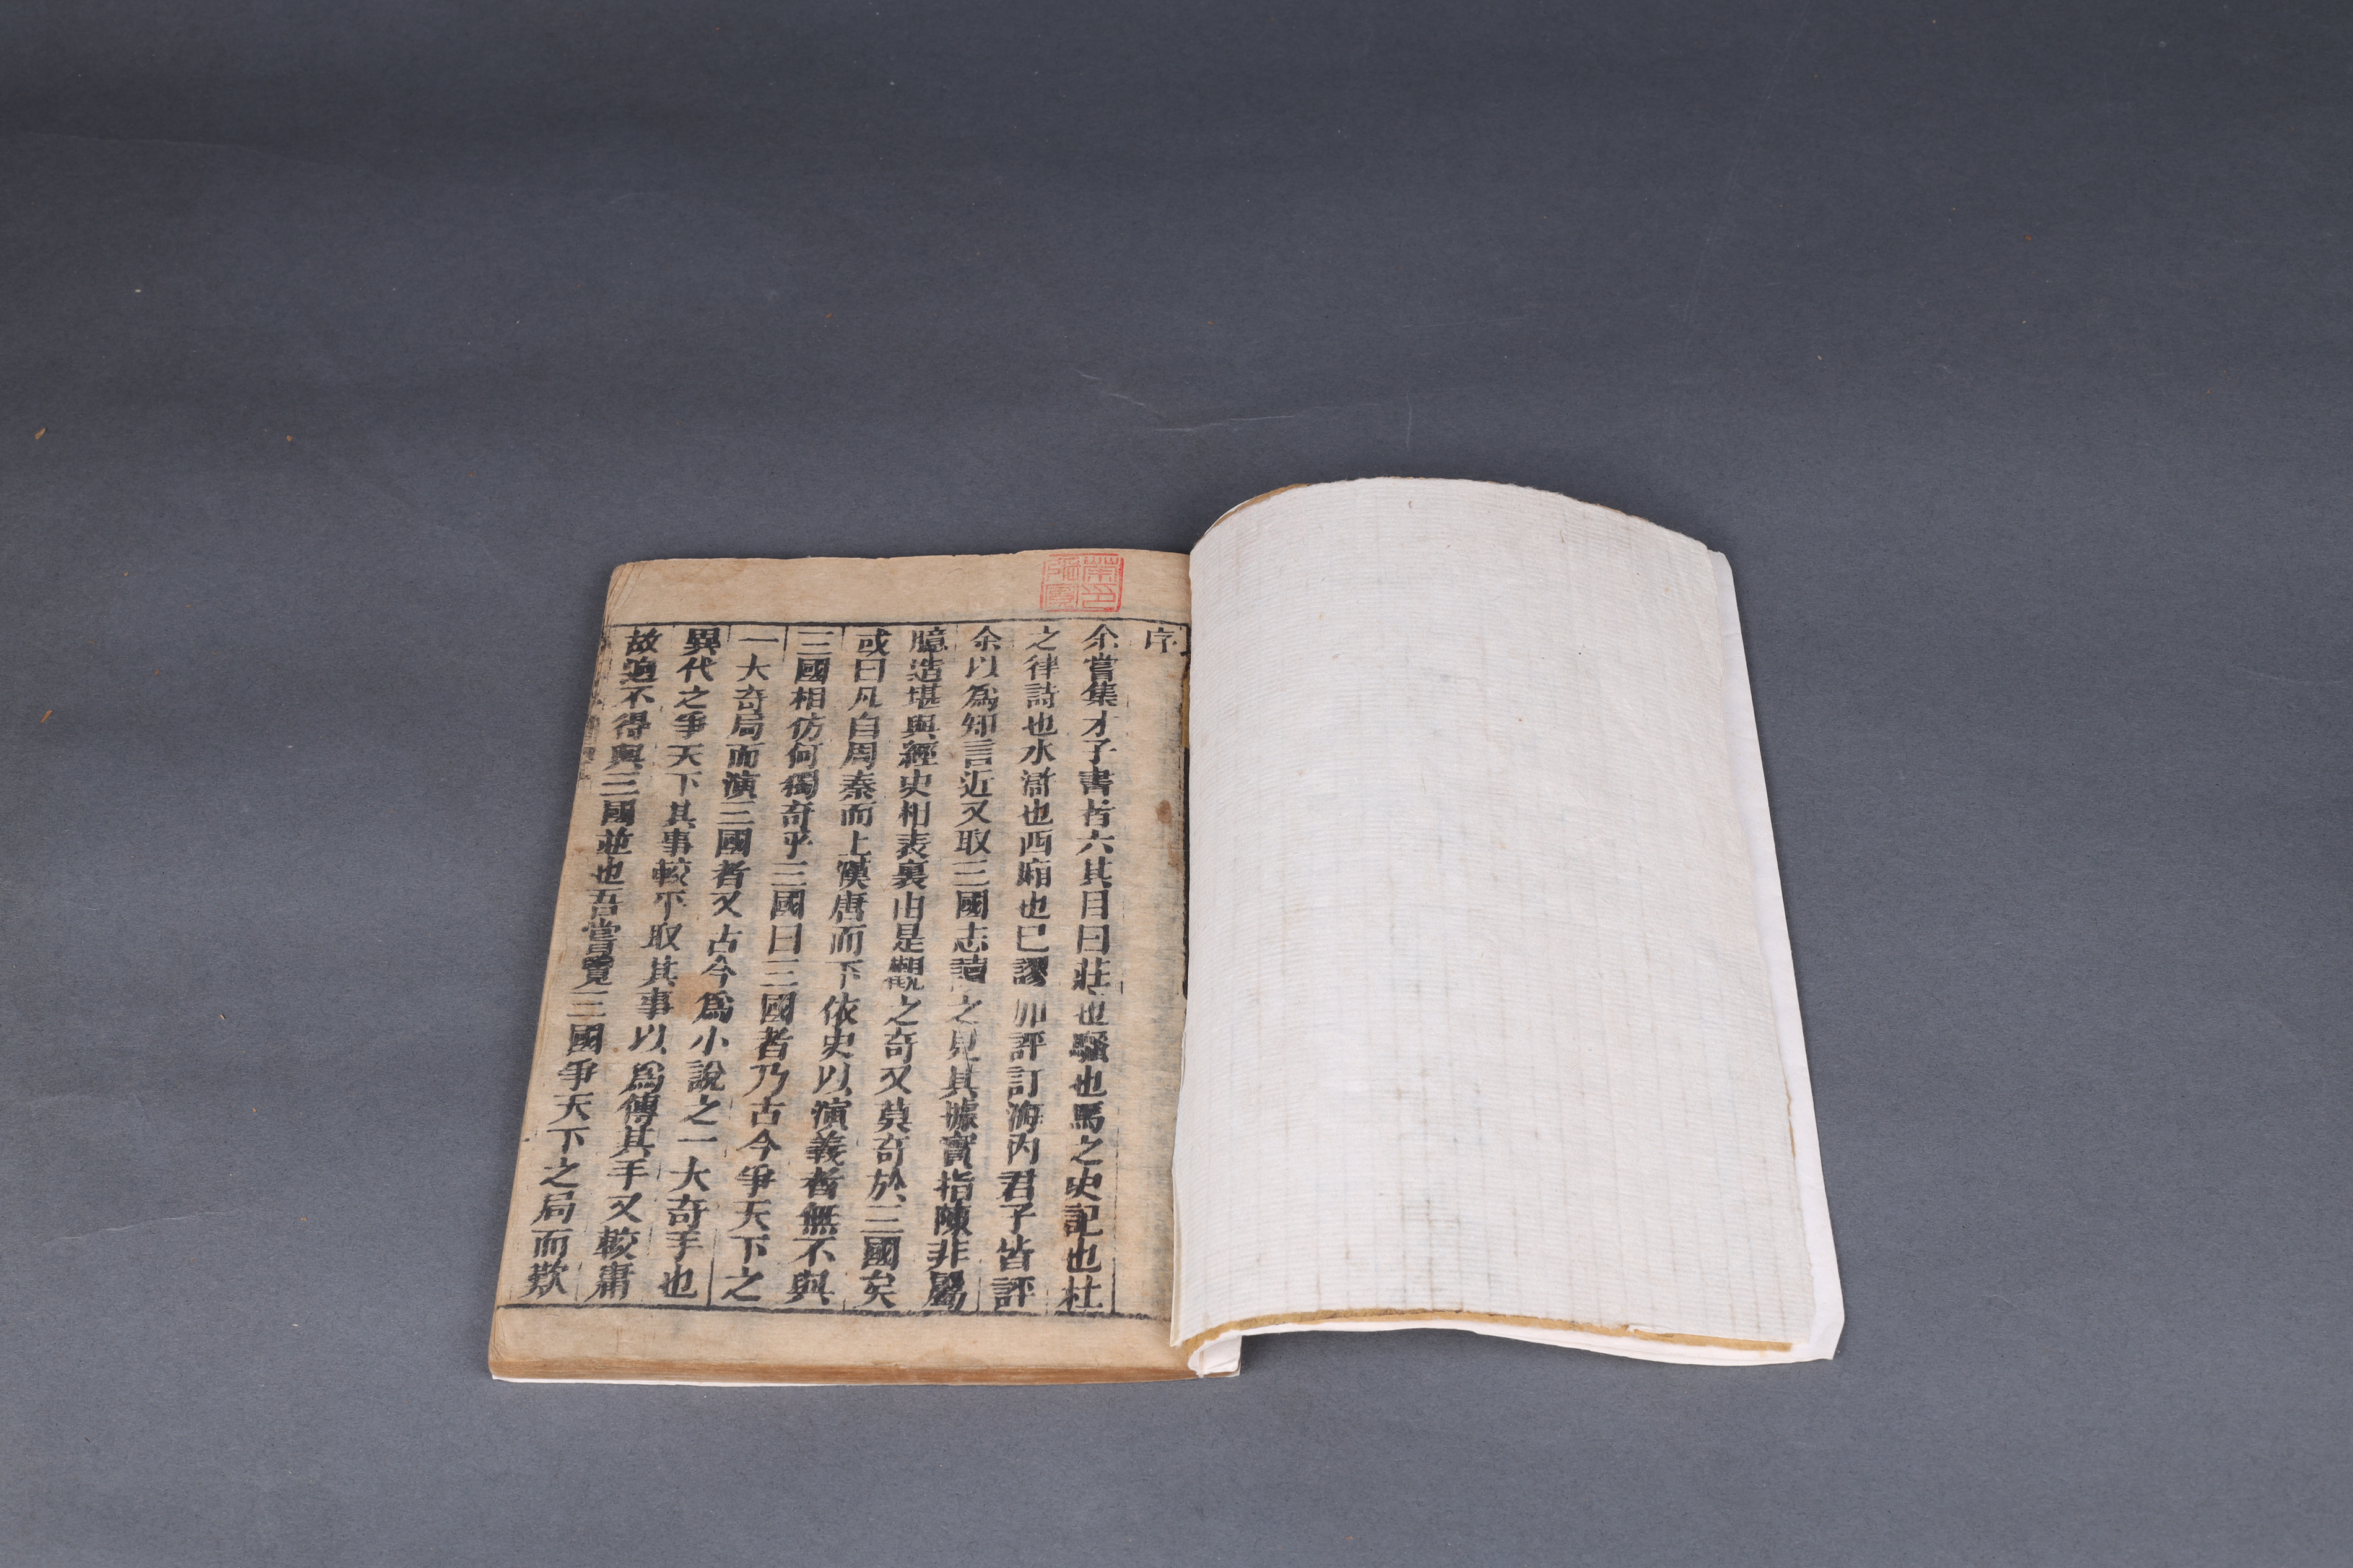 序
余嘗集才子書者六其目曰莊也騷也馬之史記也杜
之律詩也水滸也西廂也已謬加評訂海內君子皆評
余以爲知言近又取三國志讀之見其據實指陳非屬
臆造堪與經史相表裏由是觀之奇又莫奇於三國矣
或曰凡自周秦而上漢唐而下依史以演義者無不與
三國相仿何獨奇乎三國曰三國者乃古今爭天下之
一大奇局而演三國者又古今爲小說之一大奇手也
異代之爭天下其事較平取其事以爲傳其手又較庸
故迥不得與三國並也吾嘗覽三國爭天下之局而歎